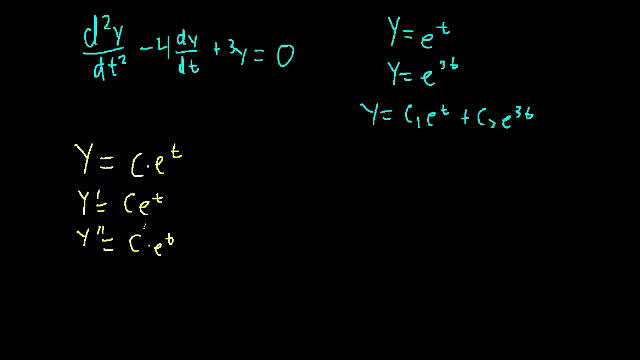 d²y/dt² - 4 dy/dt + 3y = 0
y = e^t
y = e^3t
y = c₁e^t + c₂e^3t
y = c·e^t
y' = ce^t
y'' = c·e^t